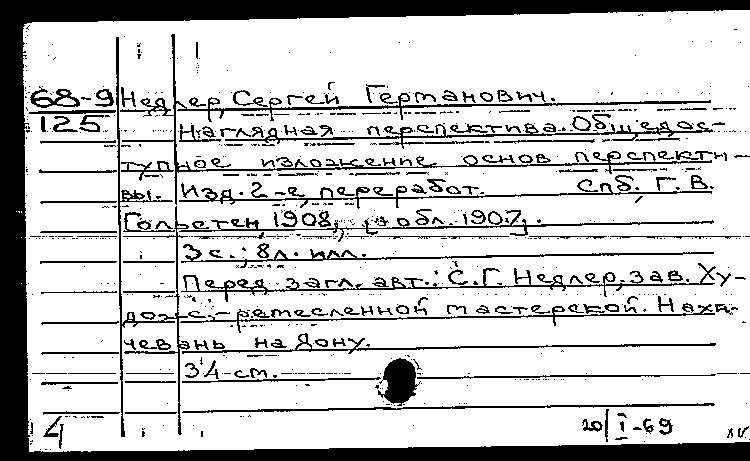 68-9 Недлер, Сергей Германович.
125 Наглядная перспектива. Общедос-
тупное изложение основ перспекти-
вы. Изд. 2-е, переработ. Спб., Г. В.
Гольстен, 1908, [обл. 1907].
3 с.; 8 л. илл.
Перед загл. авт.: С.Г. Недлер, зав. Ху-
дож.-ремесленной мастерской. Нахи-
чевань на Дону.
34 см.
4 20/I-69